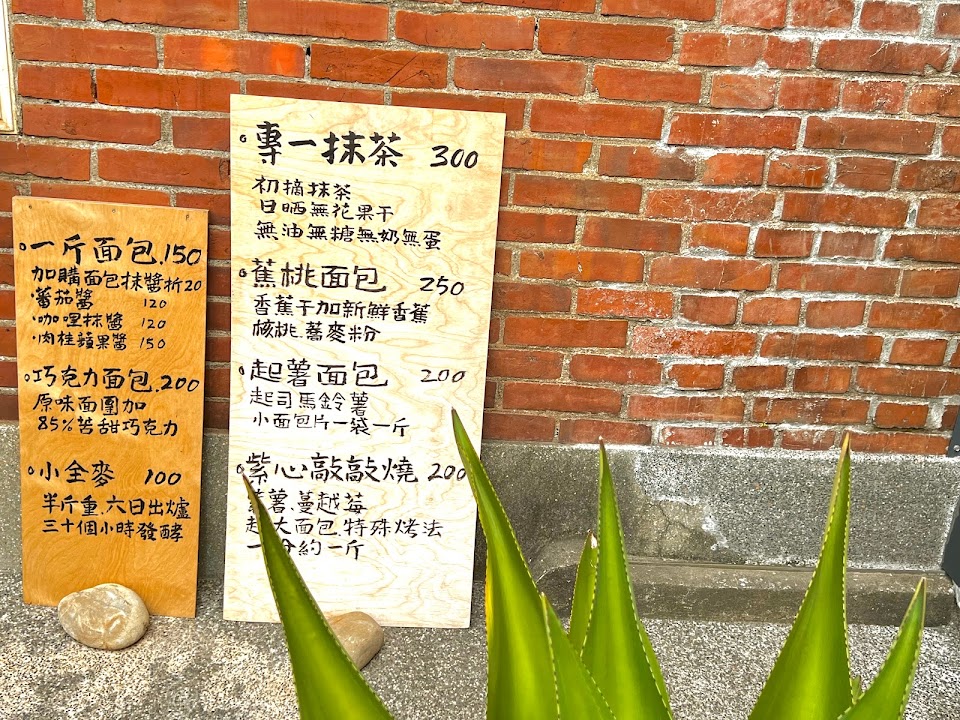 一斤面包.150
加購面包抹醬折20
·蕃茄醬 120
·咖哩抹醬 120
·肉桂蘋果醬 150
巧克力面包.200
原味面團加
85%苦甜巧克力
小全麥 100
半斤重.六日出爐
三十個小時發酵
專一抹茶 300
初摘抹茶
日晒無花果干
無油無糖無奶無蛋
蕉桃面包 250
香蕉干加新鮮香蕉
核桃.蕎麥粉
起薯面包 200
起司馬鈴薯
小面包片一袋一斤
紫心敲敲燒 200
薯.蔓越莓
大面包.特殊烤法
一 約一斤